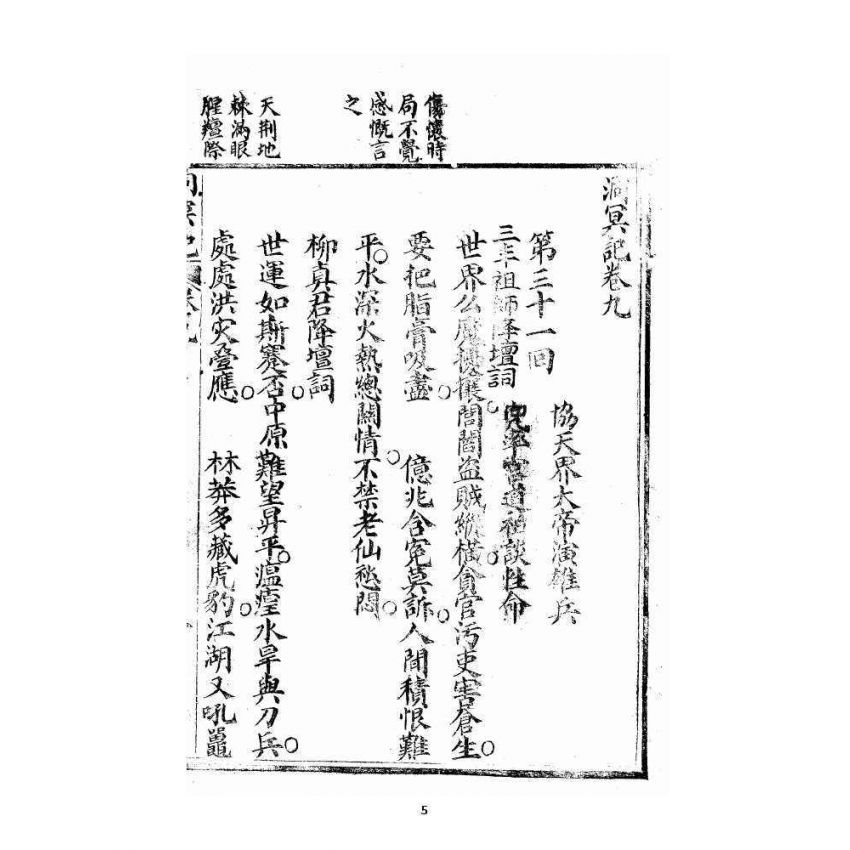 傷懷時
局不覺
感慨言
之
天荆地
棘滿眼
腥羶際
洞冥記卷九
第三十一回
協天界大帝演雄兵
兜率宮道祖談性命
三丰祖師降壇詞
世界么魔擾攘。閭閻盜賊縱橫。貪官污吏害蒼生。
要把脂膏吸盡。 億兆含冤莫訴。人間積恨難
平。水深火熱總關情。不禁老仙愁悶。
柳真君降壇詞
世運如斯蹇否。中原難望昇平。瘟水旱與刀兵。
處處洪灾疊應。 林莽多藏虎豹。江湖又吼鼉
洞冥記 卷九
5